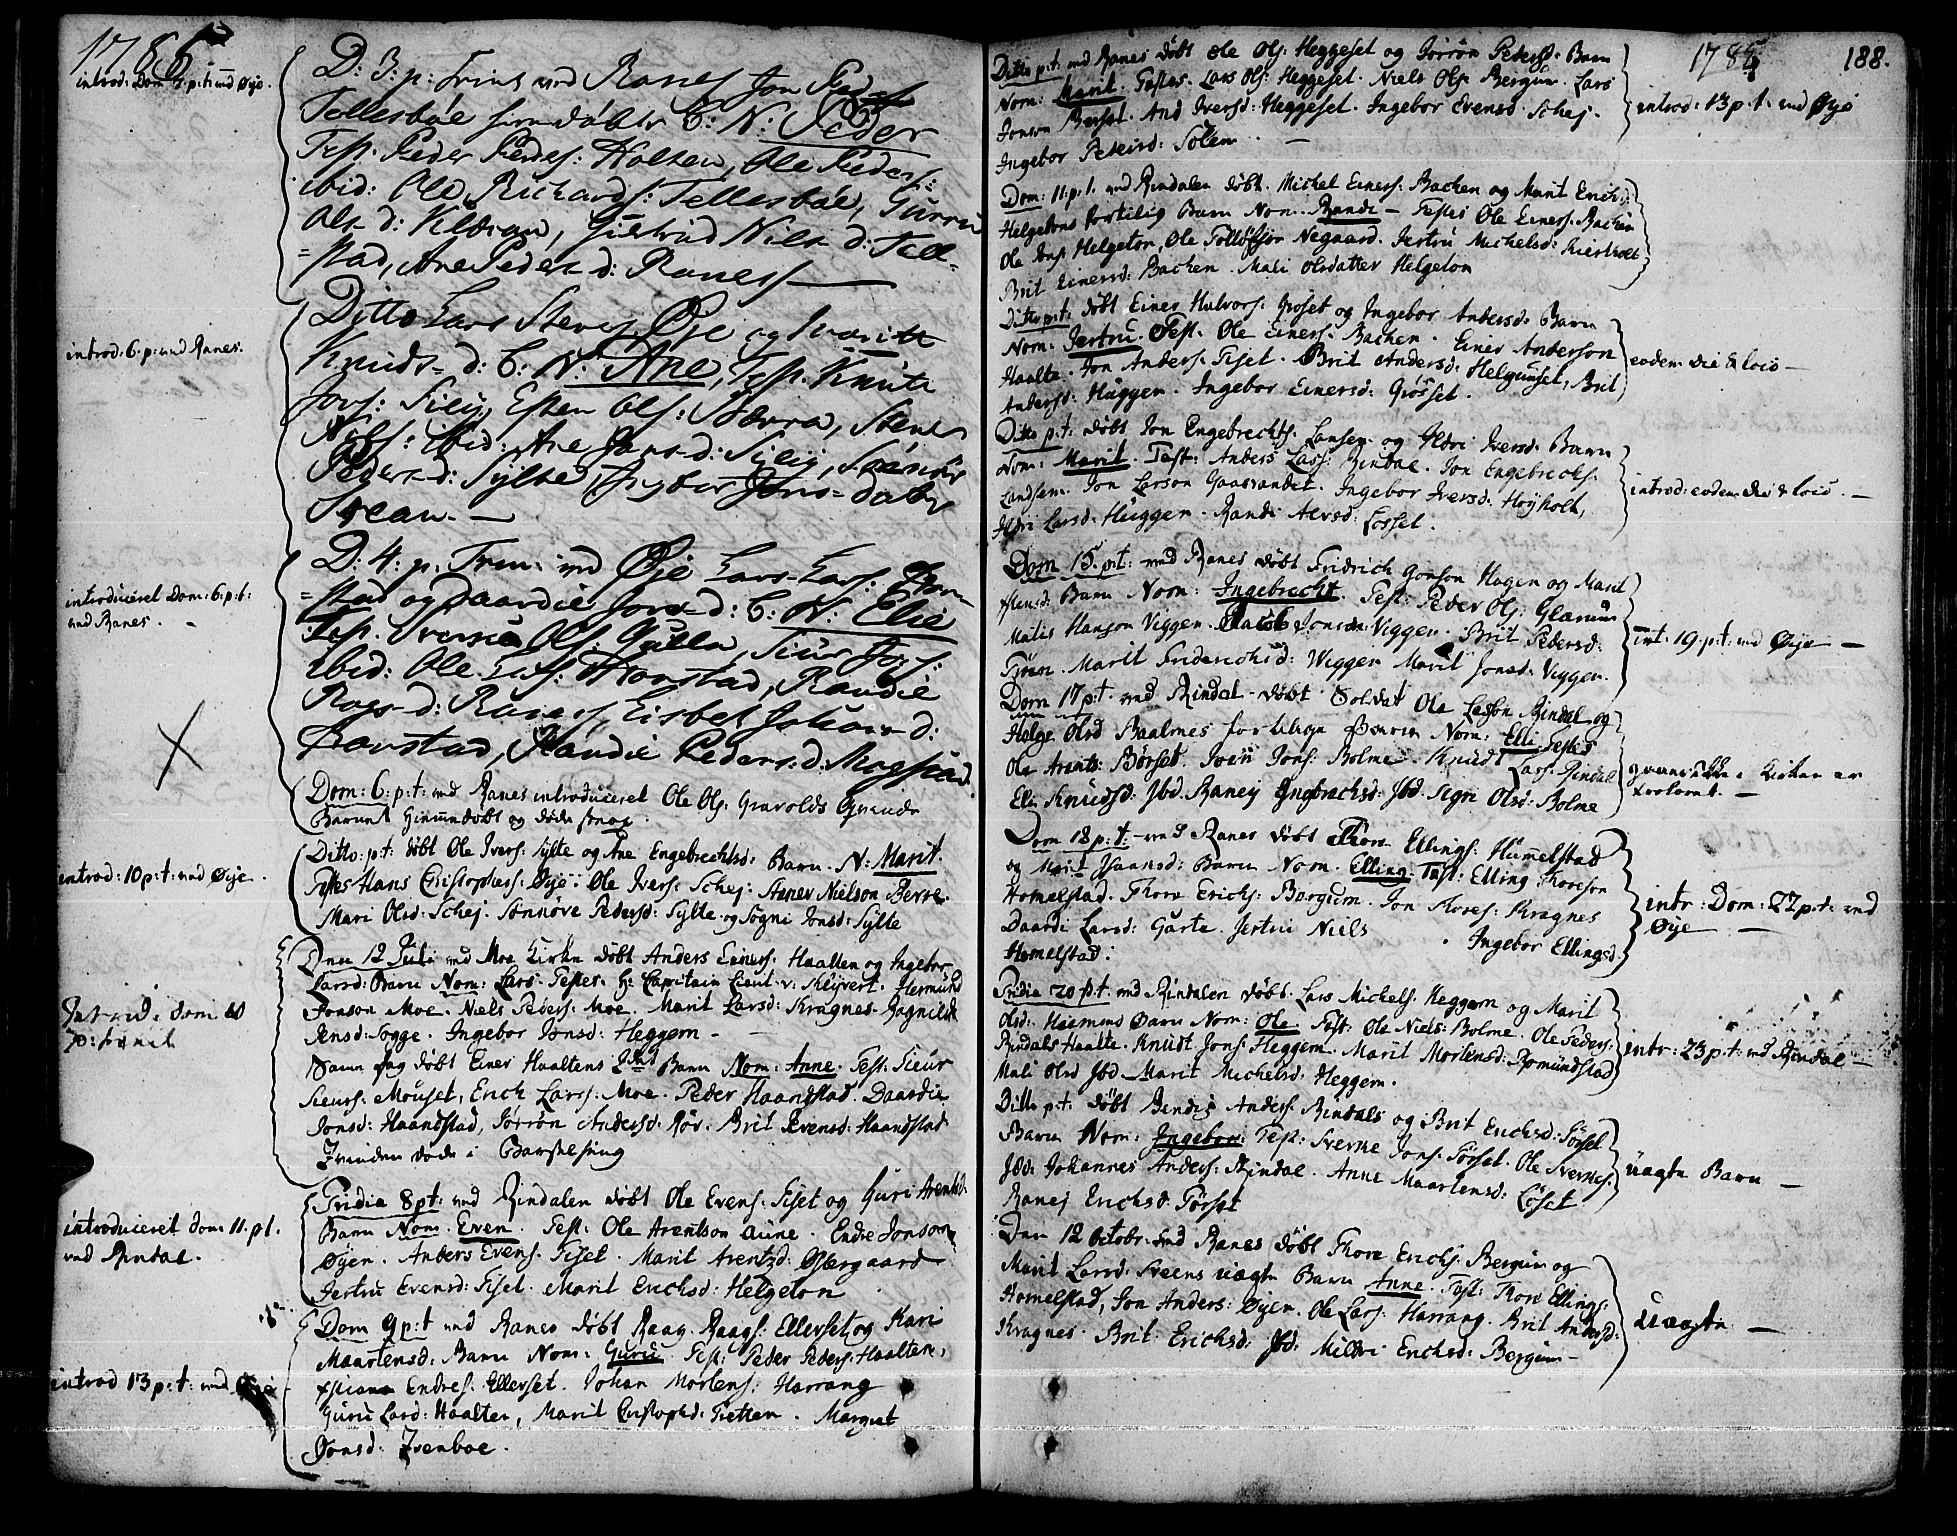 1785
introd: Dom 7. p: t: ved Øye.
D: 3: p: Trinit ved Ranes Jon Peders
Tellesbøe hiemdøbte B: N: Peder
Test. Peder Peders: Holten, Ole Peders:
ibid: Ole Richards: Tellesbøe, Gurru
Ols-d: Kleivan, Giertrud Nils-d: Tell-
=stad, Ane Peders-d: Ranes
introd: 6: p: ved Ranes.
Ditto Lars Stenes. Øye og Marit
Knuds-d: B: N: Ane, Test. Knut
Jons: Siliy, Esten Ols: Bævra, Sten
Nils: ibid: Ane Jons-d: Siliy,
Peders-d: Sylte, Ingebor Jons-dater
Svean. —
introduceret Dom: 6: p: t:
ved Ranes. -
D: 4: p. Trin: ved Øye Lars Lars:
=stad og Daardie Jons-d: B: N: Elie
Test. Iver Ols: Gulla, Siur Jons:
ibid: Ole Lars: Honstad, Randie
Rogs-d: Ranes, Lisbet Johans-d:
Honstad, Randie Peders:d: Mogstad.
Dom: 6: p: t: ved Ranes introduceret Ole Ols: Gravolds Qvinde
Barnet hiemmedøbt og døde strax.
introd: 10 p: t: ved Øye.
Ditto: p: t: døbt Ole Ivers: Sylte og Ane Engebrechtsd: Barn. N: Marit.
Testes Hans Christophers: Øye. Ole Ivers: Schej. Stener Nielson Berre.
Mari Olsd: Schej. Sønnøve Pedersd: Sylte og Sogni Jonsd: Sylte
Den 12 Juli ved Moe Kirke døbt Anders Einers: Haalten og Ingebor
Larsd: Barn Nom: Lars. Testes. Hr Capitain Lieut. v: Klyvert. Hermund
Jonson Moe. Niels Peders: Moe. Marit Larsd: Kragnes. Ragnild
Jensd: Sogge. Ingebor Jonsd: Heggem -
Introd: Dom 10
p: trinit
Samme Dag døbt Einer Haaltens Barn Nom: Anne. Test. Sieur
Sieurs. Mouset, Erich Lars: Moe. Peder Haandstad. Daardie
Jonsd: Haandstad, Jørrøn Andersd: Rør. Brit Evensd: Haandstad
Qvinden døde i Barselseng
introduceret Dom: 11. p t.
ved Rindal.
Fridie 8 p t: ved Rindalen døbt Ole Evens: Tiset og Guri Arentsd:
Barn Nom. Even. Test: Ole Arentson Aune. Endre Jonson
Øyen. Anders Evens. Tiset. Marit Arentzd: Østergaard
Jertru Evensd: Tiset. Marit Erichsd: Helgeton
introd 13 p: t: ved Øye
Dom 9 p: t ved Ranes døbt Raag Raags: Ellerset og Kari
Maartensd: Barn Nom: Guru. Test: Peder Peders: Haalten,
Endres: Ellerset. Johan Mortens: Harrang
Guru Larsd: Haalten, Marit Christophd: Tretten. Margret
Jonsd: Ivenboe.
1785
188.
Ditto p: t: ved Ranes døbt Ole Ols: Heggeset og Jørrøn Pedersd: Barn
Nom: Marit. Testes. Lars Ols: Heggeset. Niels Ols: Bergum. Lars
Jonson Berset. And Iversd: Heggeset. Ingebor Evensd: Schej.
Ingebor Petersd: Solem. —
introd: 13 p: t: ved Øye
Dom: 11: p: t. ved Rindalen døbt. Michel Einers: Bachen og Marit Erichsd:
Helgetons fortilig Barn Nom: Randi — Testes Ole Einers. Bachen
Ole Jons: Helgeton, Ole Tolløfsøn Negaard. Jertru Michelsd: Kierholt
Brit Einersd: Bachen. Mali Olsdatter Helgeton
Ditto p: t: døbt Einer Halvors: Grøset og Ingebor Andersd: Barn
Nom: Jertru. Test. Ole Einers: Bachen. Einer Anderson
Haalte. Jon Anders: Tiset. Brit Andersd: Helgunset, Brit
Andersd: Huggen. Ingebor Einersd: Grøset.
eodem Die & loco —
Ditto p: t: døbt Jon Engebrechts. Lansem. og Ildri Iversd: Barn
Nom: Marit. Test: Anders Lars: Rindal. Jon Engebrechs:
Landsem. Jon Larson Gaasvandet. Ingebor Iversd: Høyholt,
Ildri Larsd: Huggen. Randi Aersd: Losset.
introd: eodem Die & loco. —
Dom 15. p: t: ved Ranes døbt Fridrich Jonson Hagen og Marit
Barn Nom: Ingebrecht. Test: Peder Ols: Glærum
Matis Hanson Viggen. Jacob Jonson Viggen. Brit Pedersd:
Tiøen. Marit Friderichsd: Viggen. Marit Jonsd: Viggen.
int: 19. p: t: ved Øye —
Dom 17 p: t ved Rindal døbt Soldat Ole Larson Rindal og
Helge Olsd Baalmes for tilige Barn Nom: Elli Testes
Ole Arents: Børset. Join Jons: Bolme. Knudt Lars: Rindal
Eli Knudsd: Ibd. Raney Ingebrechsd: Ibd. Sigri Olsd: Bolme
qvinden i Kirken er
—
Dom 18 p: t: ved Ranes døbt Thore Ellings: Hummelstad
og Marit Isaansd: Barn Nom. Elling. Test: Elling Thoreson
Homelstad. Thore Erichs: Bergum. Jon Thores: Kragnes
Daardi Larsd: Garte. Jertru Niels . Ingebor Ellingsd:
Homelstad:
intr: Dom: 22 p: t: ved
Øye —
Fridie 20 p: t: ved Rindalen døbt. Lars Michels: Heggem og Marit
Olsd: Barn Nom: Ole. Test: Ole Niels: Bolme. Ole Peders:
Rindals Haalte. Knudt Jons: Heggem. Marit Mortensd: Romundstad
Mali Olsd Ibd. Marit Michelsd: Heggem.
intr: 23 p: t: ved Rindal —
Ditto p: t: døbt Bendix Anders: Rindals og Brit Erichsd: Tørset
Barn Nom: Ingebor: Test: Sverke Jons: Tørset. Ole Sverkes:
Ibd: Johannes Anders: Rindal. Anne Maartensd: Løset.
Raney Erichsd: Tørset
uægte Barn —
Den 12 Octobr. ved Ranes døbt Thore Erichs: Bergum og
Marit Larsd: Sveens uægte Barn Anne. Test: Thore Ellings:
Homelstad, Jon Anders: Øyen. Ole Lars: Harrang. Brit Andersd:
Kragnes. Brit: Erichsd: Ibd: Mildri Erichsd: Bergum —
uægte —